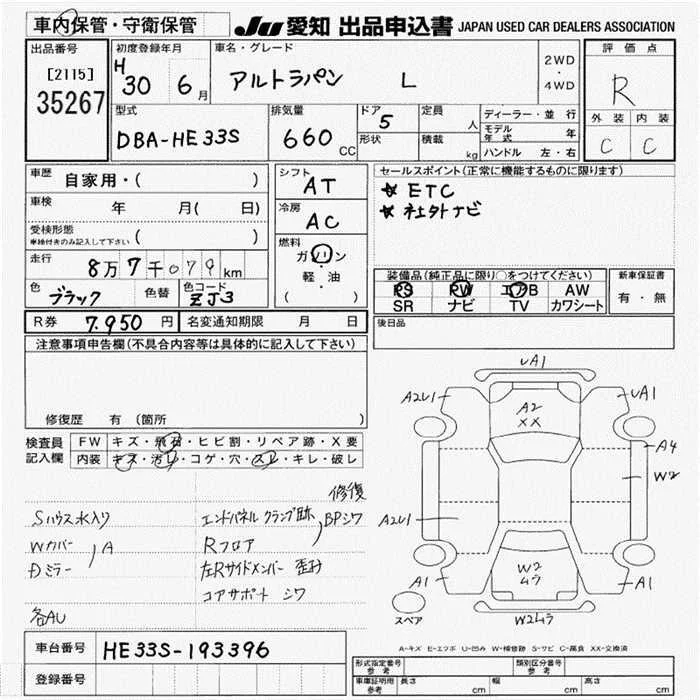 車内保管・守衛保管
JU 愛知 出品申込書 JAPAN USED CAR DEALERS ASSOCIATION
出品番号
[2115]
35267
初度登録年月
H 30 6月
車名・グレード
アルトラパン L
2WD
・
4WD
評価点
R
外装 内装
C C
型式
DBA-HE33S
排気量
660 CC
ドア
5
形状
定員
人
積載
kg
ディーラー・並行
モデル年式 年
ハンドル 左・右
車歴 自家用・( )
車検 年 月( 日)
受検形態
車検付きのみ記入して下さい ( )
走行 8万7千079km
色 ブラック 色替 色コード ZJ3
シフト
AT
冷房
AC
燃料
ガソリン
・
軽・油
( )
セールスポイント(正常に機能するものに限ります)
☆ ETC
☆ 社外ナビ
装備品(純正品に限り○をつけてください)
PS PW エアB AW
SR ナビ TV カワシート
新車保証書
有・無
後日品
R券 7.950円 名変通知期限 月 日
注意事項申告欄(不具合内容等は具体的に記入して下さい)
修復歴 有 (箇所 )
検査員記入欄
FW キズ・飛石・ヒビ割・リペア跡・X要
内装 キズ・汚レ・コゲ・穴・スレ・キレ・破レ
修復
Sハウス水入り
Wカバー
Dミラー
A
各AU
エンドパネル クランプ跡
Rフロア
BPシワ
左Rサイドメンバー 歪み
コアサポート シワ
UA1
A2U1
UA1
A2
XX
A4
W2
A2U1
A1
W2
ムラ
A1
スペア
W2ムラ
A-キズ E-エクボ U-凹み W-補修跡 S-サビ C-腐食 XX-交換済
車台番号 HE33S-193396
登録番号
形式指定番号
参考
類別区分番号
参考
車庫証明用
参考
長さ cm 幅 cm 高さ cm